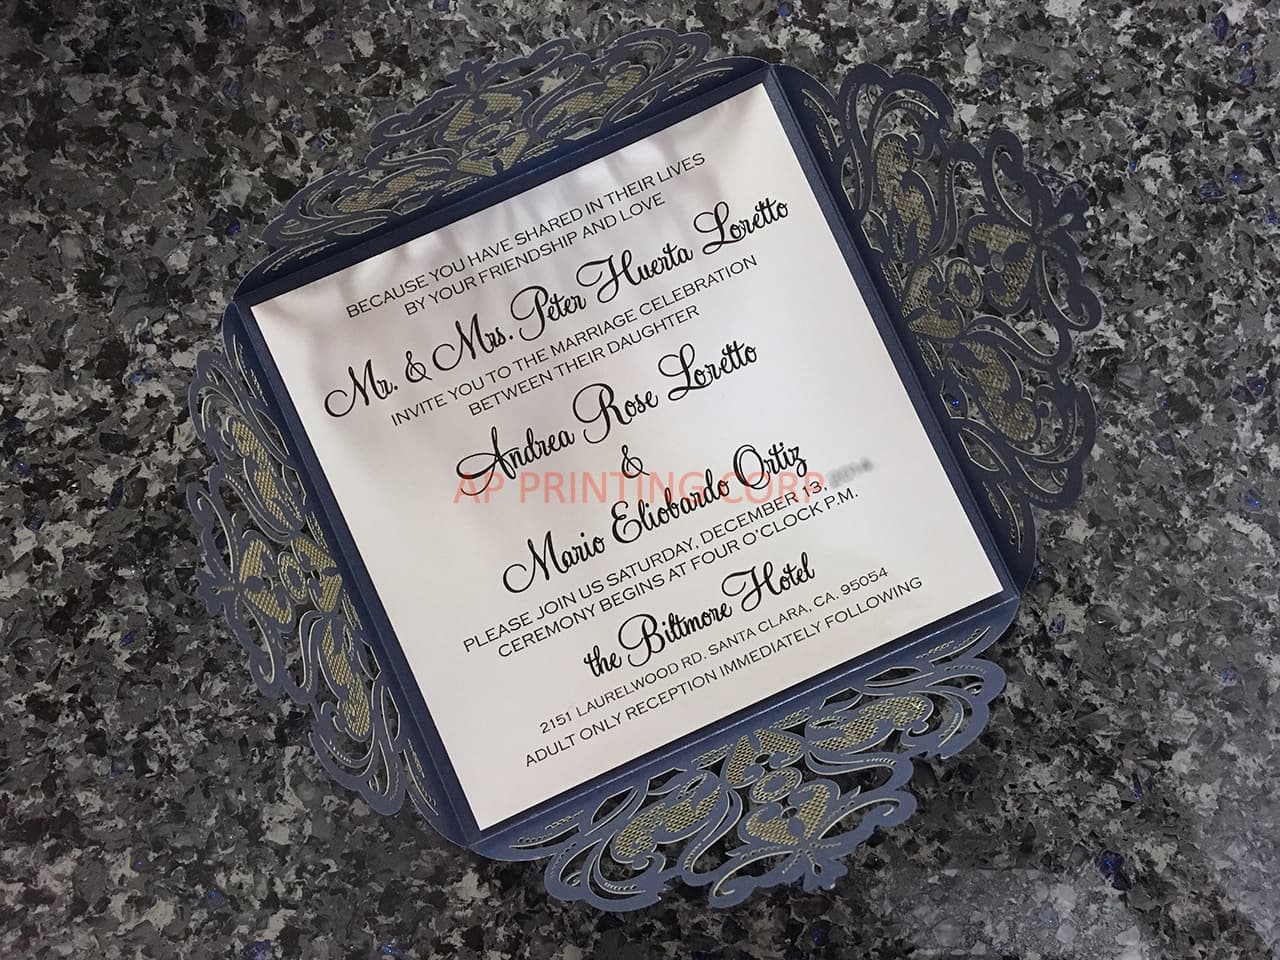 BECAUSE YOU HAVE SHARED IN THEIR LIVES
BY YOUR FRIENDSHIP AND LOVE
Mr. & Mrs. Peter Huerta Loretto
INVITE YOU TO THE MARRIAGE CELEBRATION
BETWEEN THEIR DAUGHTER
Andrea Rose Loretto
&
Mario Eliobardo Ortiz
PLEASE JOIN US SATURDAY, DECEMBER 13,
CEREMONY BEGINS AT FOUR O'CLOCK P.M.
the Biltmore Hotel
2151 LAURELWOOD RD. SANTA CLARA, CA. 95054
ADULT ONLY RECEPTION IMMEDIATELY FOLLOWING
AP PRINTING CORP